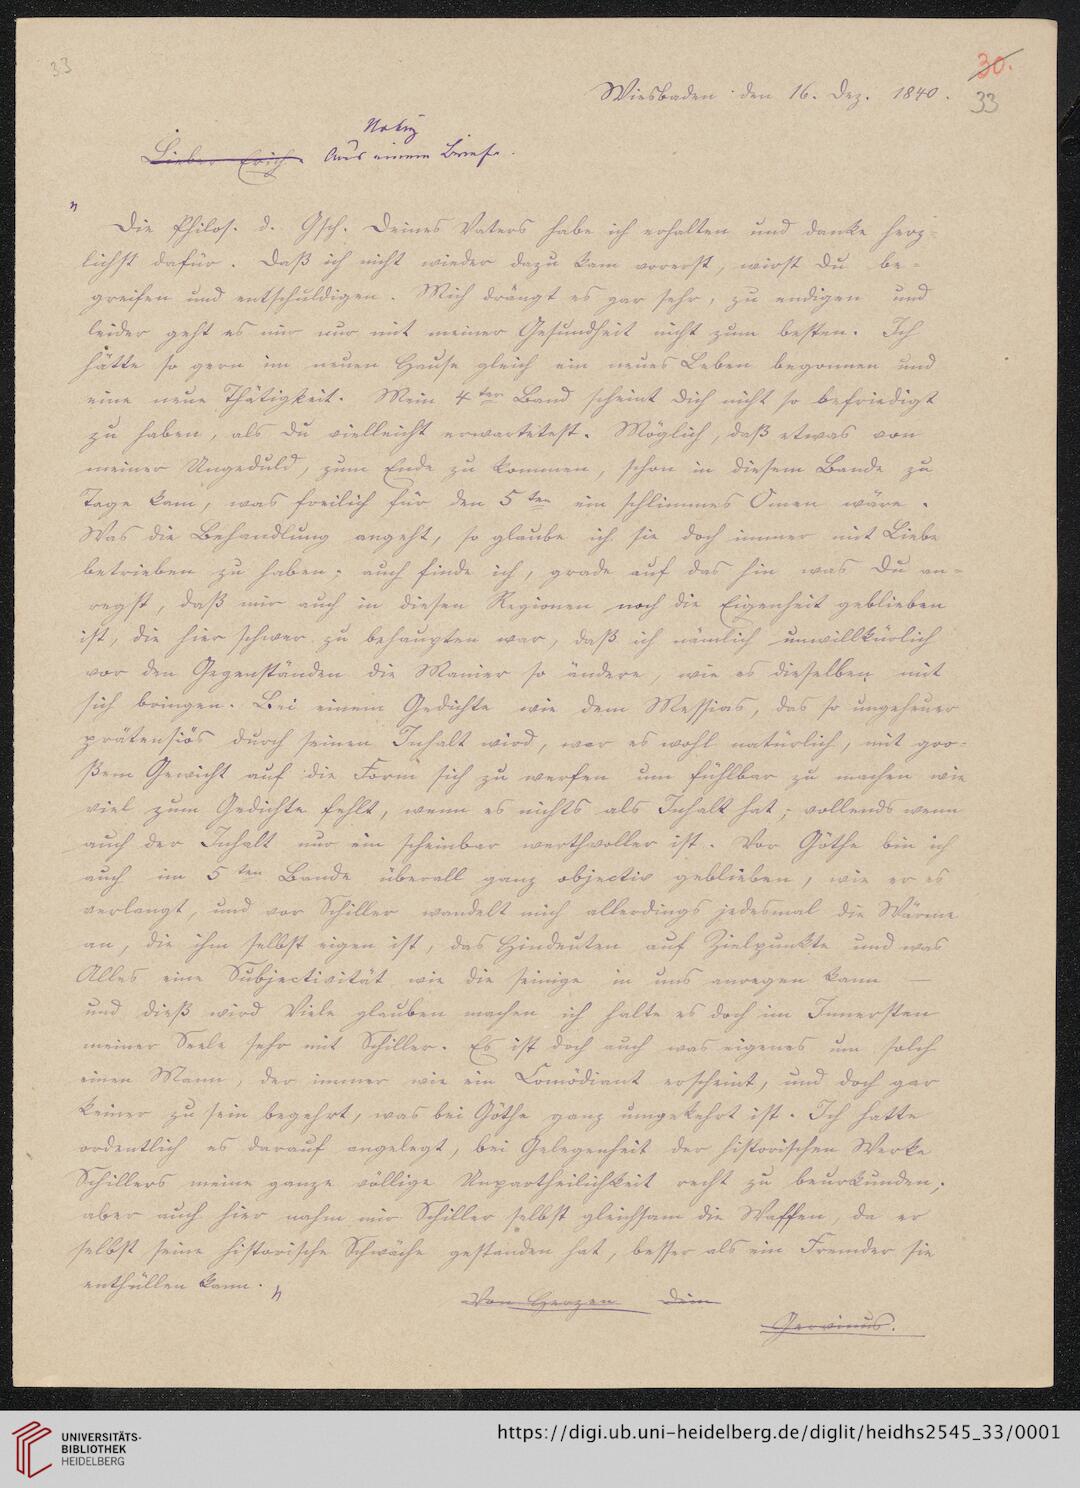 33
30.
33
Wiesbaden den 16. Dez. 1840.
Notiz
Lieber Erich. Aus einem Briefe.
"
Die Philos. d. Gsch. Deines Vaters habe ich erhalten und danke herz-
lichst dafür. Daß ich nicht wieder dazu kam vorerst, wirst Du be-
greifen und entschuldigen. Mich drängt es gar sehr, zu endigen und
leider geht es mir nur mit meiner Gesundheit nicht zum besten. Ich
hätte so gern im neuen Hause gleich ein neues Leben begonnen und
eine neue Thätigkeit. Mein 4ter Band scheint Dich nicht so befriedigt
zu haben, als Du vielleicht erwartetest. Möglich, daß etwas von
meiner Ungeduld, zum Ende zu kommen, schon in diesem Bande zu
Tage kam, was freilich für den 5ten ein schlimmes Omen wäre.
Was die Behandlung angeht, so glaube ich sie doch immer mit Liebe
betrieben zu haben; auch finde ich, grade auf das hin was Du an-
regst, daß mir auch in diesen Regionen noch die Eigenheit geblieben
ist, die hier schwer zu behaupten war, daß ich nämlich unwillkürlich
vor den Gegenständen die Manier so ändere, wie es dieselben mit
sich bringen. Bei einem Gedichte wie dem Messias, das so ungeheuer
prätensiös durch seinen Inhalt wird, war es wohl natürlich, mit gro-
ßem Gewicht auf die Form sich zu werfen um fühlbar zu machen wie
viel zum Gedichte fehlt, wenn es nichts als Inhalt hat; vollends wenn
auch der Inhalt nur ein scheinbar werthvoller ist. Vor Göthe bin ich
auch im 5ten Bande überall ganz objectiv geblieben, wie er es
verlangt, und vor Schiller wandelt mich allerdings jedesmal die Wärme
an, die ihm selbst eigen ist, das Hindeuten auf Zielpunkte und was
Alles eine Subjectivität wie die seinige in uns anregen kann —
und dieß wird Viele glauben machen ich halte es doch im Innersten
meiner Seele sehr mit Schiller. Es ist doch auch was eigenes um solch
einen Mann, der immer wie ein Comödiant erscheint, und doch gar
keiner zu sein begehrt, was bei Göthe ganz umgekehrt ist. Ich hatte
ordentlich es darauf angelegt, bei Gelegenheit der historischen Werke
Schillers meine ganze völlige Unpartheilichkeit recht zu beurkunden;
aber auch hier nahm mir Schiller selbst gleichsam die Waffen, da er
selbst seine historische Schwäche gestanden hat, besser als ein Fremder sie
enthüllen kann. "
Von Herzen Dein
Gervinus.
UNIVERSITÄTS-
BIBLIOTHEK
HEIDELBERG
https://digi.ub.uni-heidelberg.de/diglit/heidhs2545_33/0001